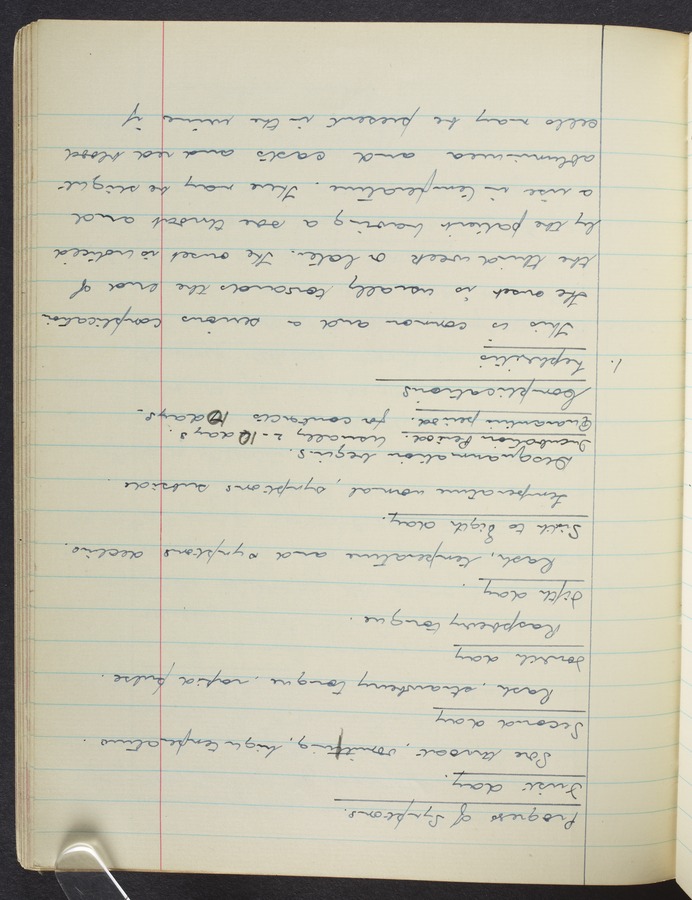 Progress of Symptoms.
First day.
Sore throat, vomiting, high temperature.
Second day
Rash, strawberry tongue, rapid pulse.
Fourth day
Raspberry tongue.
Fifth day.
Rash, temperature and symptoms decline.
Sixth to Eigth day.
temperature normal, symptoms subside.
Desquammation begins.
Incubation Period. Usually 2-10 days.
Quarantine period. for contacts 10 days-
Complications
1. Nephritis
This is common and a serious complication
the onset is usually towards the end of
the third week or later. The onset is noticed
by the patient having a sore throat and
a rise in temperature. There may be slight
albuminuria and casts and red blood
cells may be present in the urine if